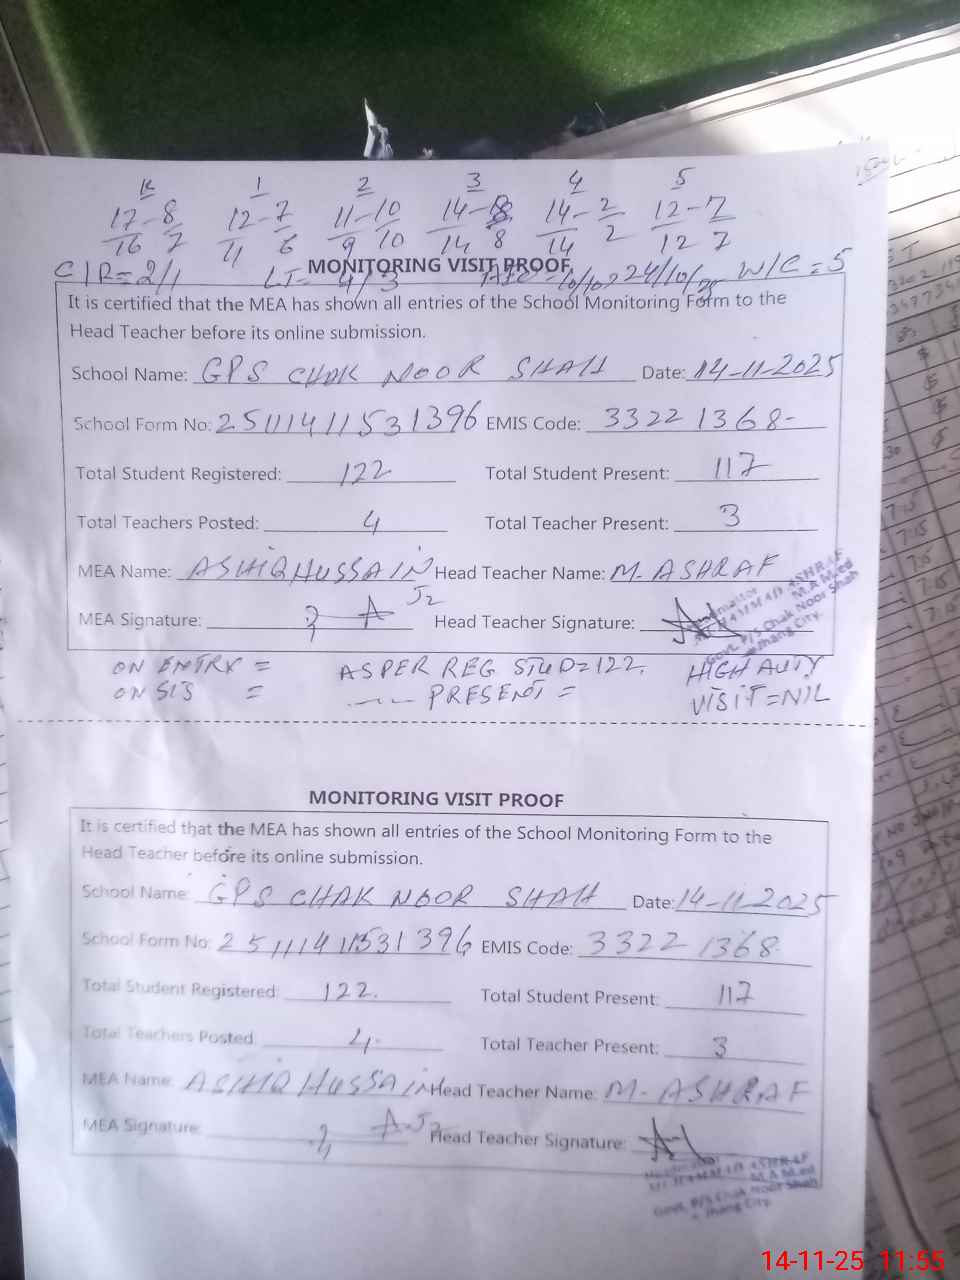 K 1 2 3 4 5
17-8 12-7 11-10 14-8 14-2 12-7
16 7 11 6 9 10 14 8 14 2 12 7
MONITORING VISIT PROOF
C/R=2/1 LT= 4/3 24/10/25 W/C=5
It is certified that the MEA has shown all entries of the School Monitoring Form to the
Head Teacher before its online submission.
School Name: GPS CHAK NOOR SHAH Date: 14-11-2025
School Form No: 25111411531396 EMIS Code: 33221368-
Total Student Registered: 122 Total Student Present: 117
Total Teachers Posted: 4 Total Teacher Present: 3
MEA Name: ASHIQ HUSSAIN Head Teacher Name: M. ASHRAF
MEA Signature: Head Teacher Signature:
MUHAMMAD ASHRAF
M.A M.ed
Govt. P/S Chak Noor Shah
Jhang City.
ON ENTRY = AS PER REG STUD=122. HIGH AUTY
ON SIS = PRESENT = VISIT=NIL
MONITORING VISIT PROOF
It is certified that the MEA has shown all entries of the School Monitoring Form to the
Head Teacher before its online submission.
School Name: GPS CHAK NOOR SHAH Date: 14-11-2025
School Form No: 25111411531396 EMIS Code: 33221368-
Total Student Registered: 122. Total Student Present: 117
Total Teachers Posted: 4 Total Teacher Present: 3
MEA Name: ASHIQ HUSSAIN Head Teacher Name: M. ASHRAF
MEA Signature: Head Teacher Signature:
MUHAMMAD ASHRAF
M.A M.ed
Govt. P/S Chak Noor Shah
Jhang City.
14-11-25 11:55